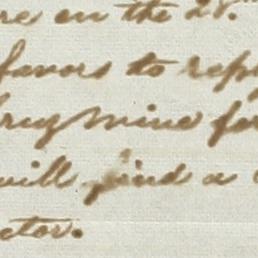 re on the 28.
favors to rep
mine for
will find a
ctor.